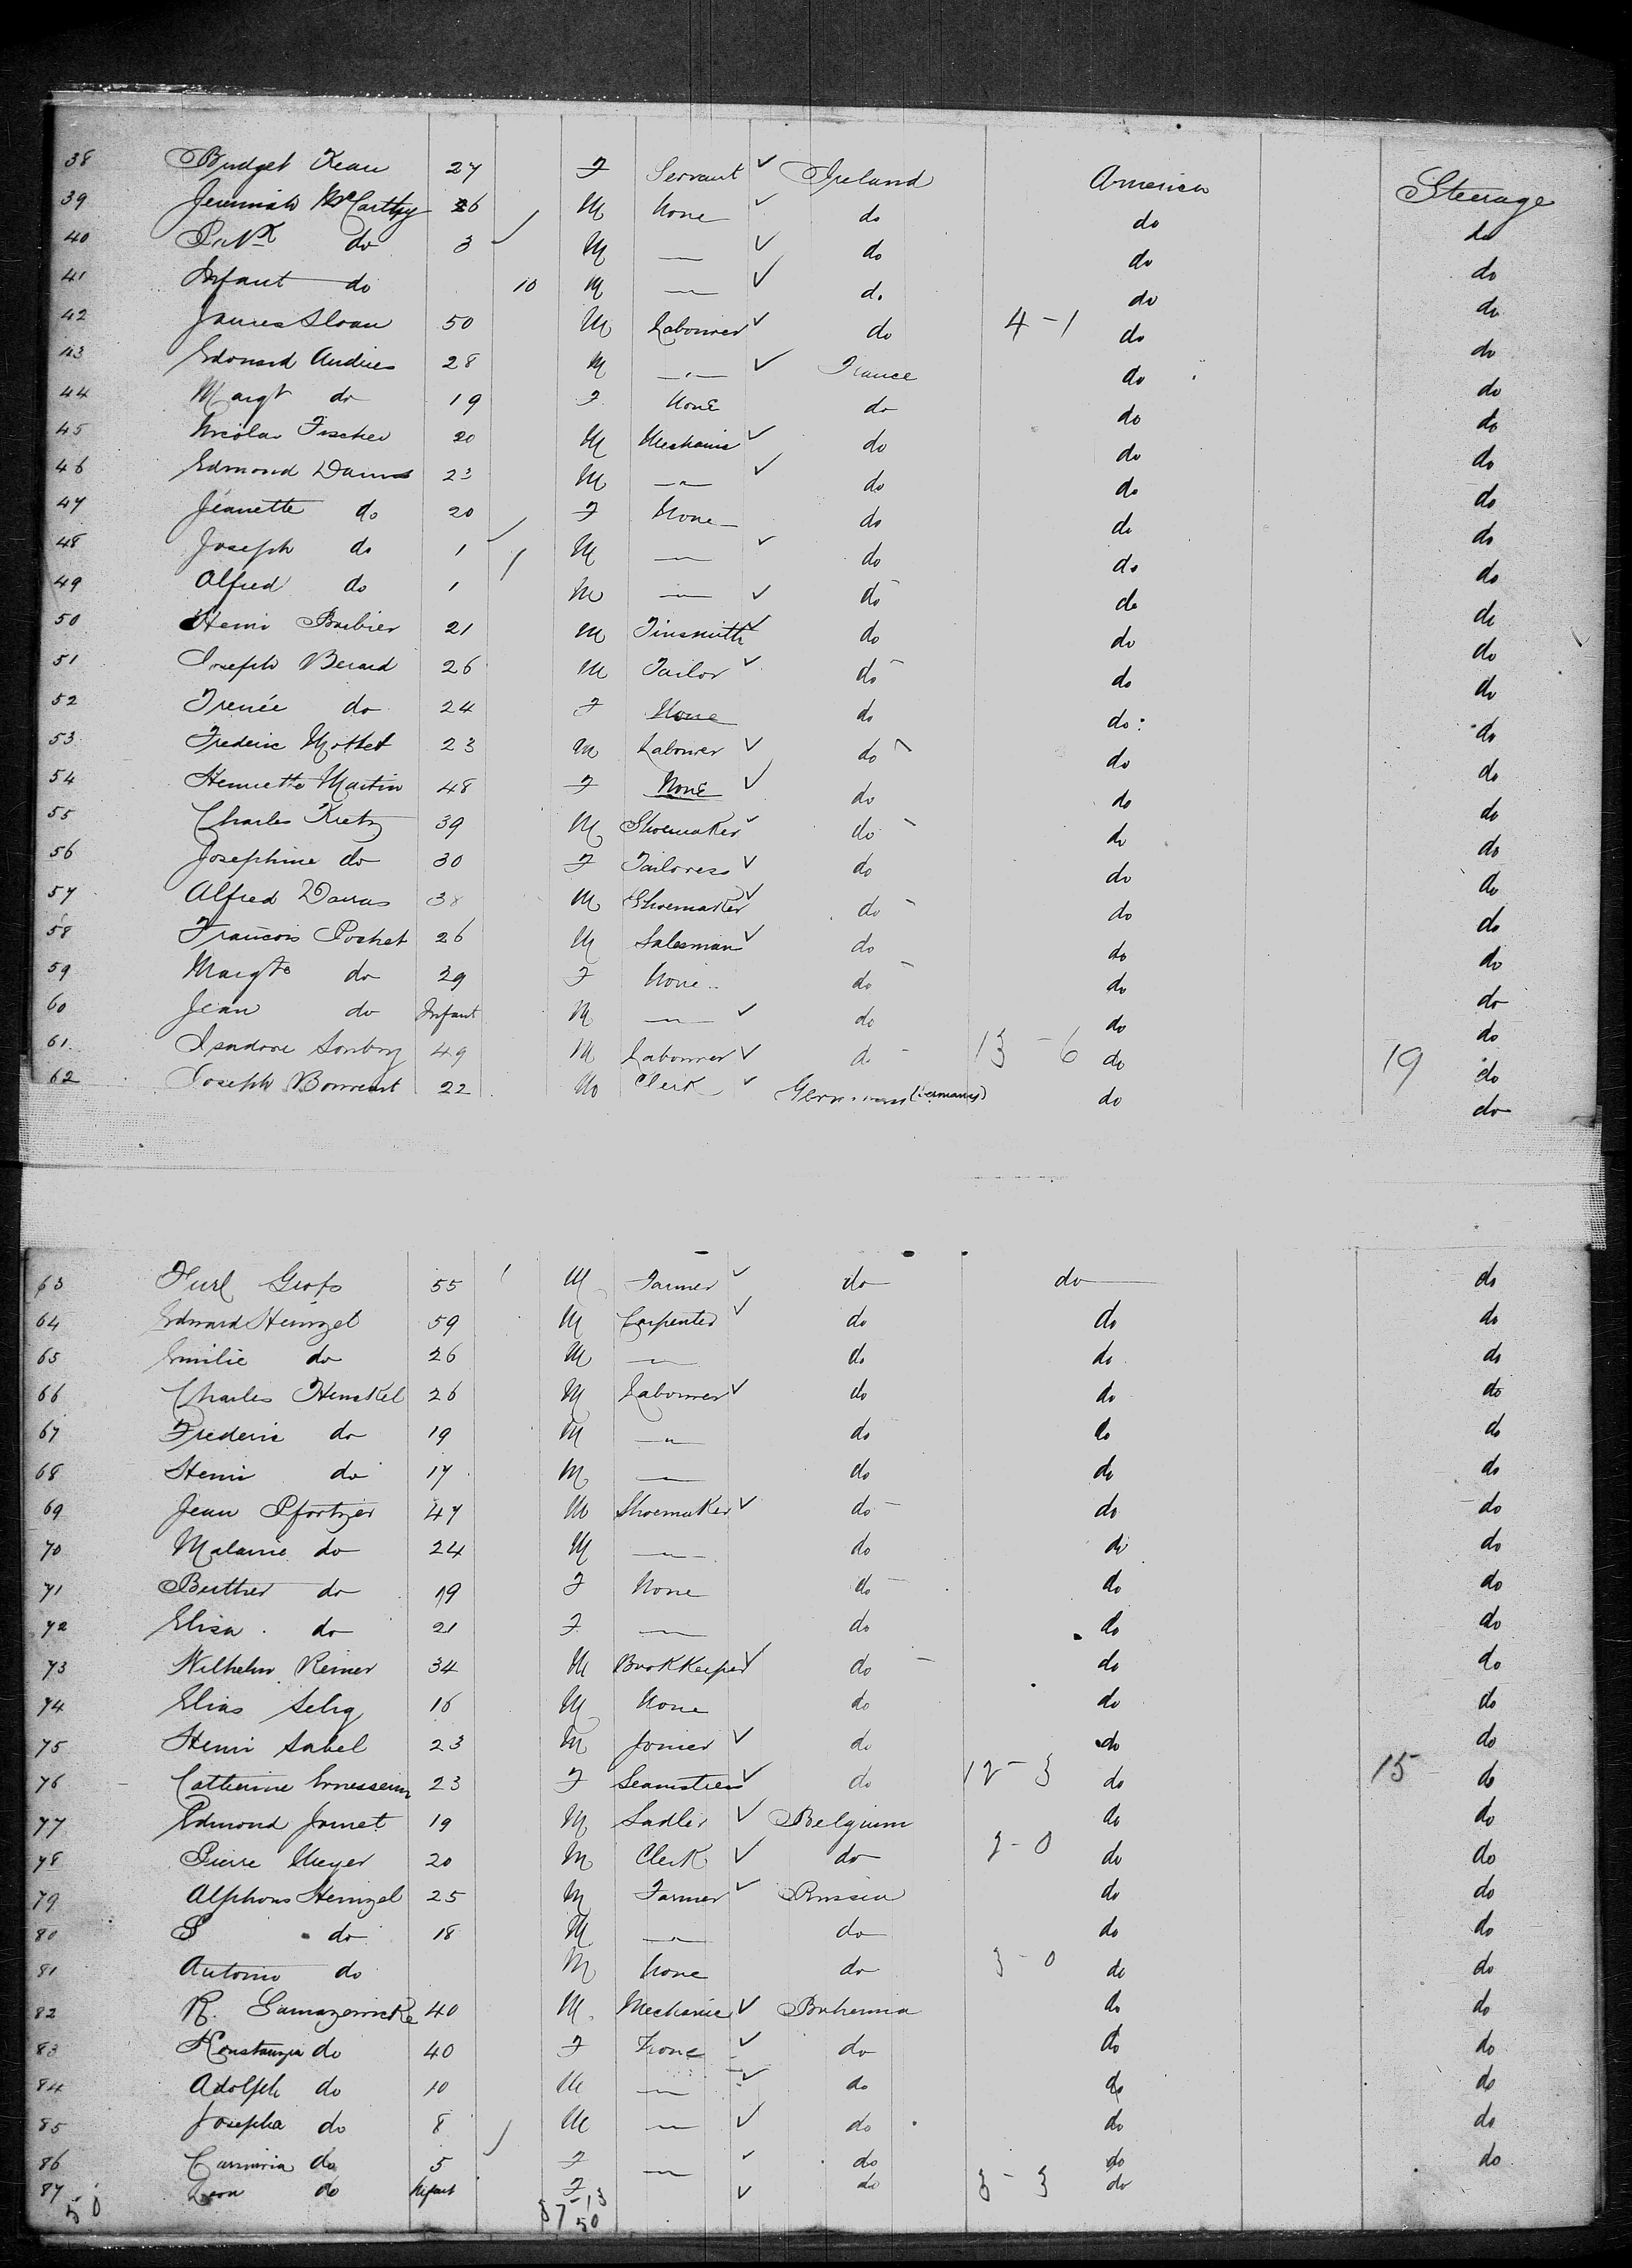 38 Bridget Kean 27 F Servant ✓ Ireland America Steerage
39 Jeremiah McCarthy 26 M None ✓ do do do
40 Patk do 3 ✓ M —"— ✓ do do do
41 Infant do 10 M —"— ✓ do do do
42 James Sloan 50 M Labourer ✓ do 4-1 do do
43 Edouard Andries 28 M —"— ✓ France do do
44 Margt do 19 F None do do do
45 Nicolas Fischer 20 M Mechanic ✓ do do do
46 Edmond 23 M —"— ✓ do do do
47 Jeanette do 20 F None do do do
48 Joseph do 1 ✓ M —"— ✓ do do do
49 Alfred do 1 M —"— ✓ do do do
50 Henri Barbier 21 M Tinsmith ✓ do do do
51 Joseph Berard 26 M Tailor ✓ do do do
52 Irenée do 24 F None do do do
53 Frederic Mottet 23 M Labourer ✓ do do do
54 Henriette Martin 48 F None ✓ do do do
55 Charles Kretz 39 M Shoemaker ✓ do do do
56 Josephine do 30 F Tailoress ✓ do do do
57 Alfred Darras 38 M Shoemaker ✓ do do do
58 Francois Pochet 26 M Salesman ✓ do do do
59 Margte do 29 F None do do do
60 Jean do Infant M —"— ✓ do do do
61 Isadore 49 M Labourer ✓ do 13-6 do 19 do
62 Joseph 22 M Clerk ✓ Germany (Germany) do do
63 Grofs 55 M Farmer ✓ do do do
64 Edward Heinzel 59 M Carpenter ✓ do do do
65 Emilie do 26 M —"— do do do
66 Charles Henskel 26 M Labourer ✓ do do do
67 Frederic do 19 M —"— do do do
68 Henri do 17 M —"— do do do
69 Jean Pfortzer 47 M Shoemaker ✓ do do do
70 Malanie do 24 M —"— do do do
71 do 19 F None do do do
72 Elisa do 21 F —"— do do do
73 Wilhelm Reiner 34 M BookKeeper ✓ do do do
74 Elias Selig 16 M None do do do
75 Henri Sabel 23 M Joiner ✓ do do do
76 Catherine 23 F Seamstress ✓ do 12-3 do 15 do
77 Edmond Jamet 19 M Sadler ✓ Belgium do do
78 Pierre Meyer 20 M Clerk ✓ do 2-0 do do
79 Alphons Heinzel 25 M Farmer ✓ Russia do do
80 S do 18 M —"— do do do
81 Antonio do M None do 3-0 do do
82 R. 40 M Mechanic ✓ Bohemia do do
83 Konstanzia do 40 F None ✓ do do do
84 Adolph do 10 M —"— ✓ do do do
85 Josepha do 8 M —"— ✓ do do do
86 do 5 ✓ F —"— ✓ do do do
87 Leon do Infant F ✓ do 3-3 do
50 37-13
50